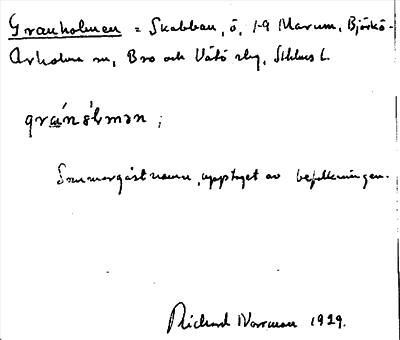 Granholmen = Skabban, ö, 1-9 Marum, Björkö-
Arholma sn, Bro och Vätö slg, Sthlms l.
gránòlmən ;
Sommargästnamn, upptaget av befolkningen.
Rickard Norrman 1929.